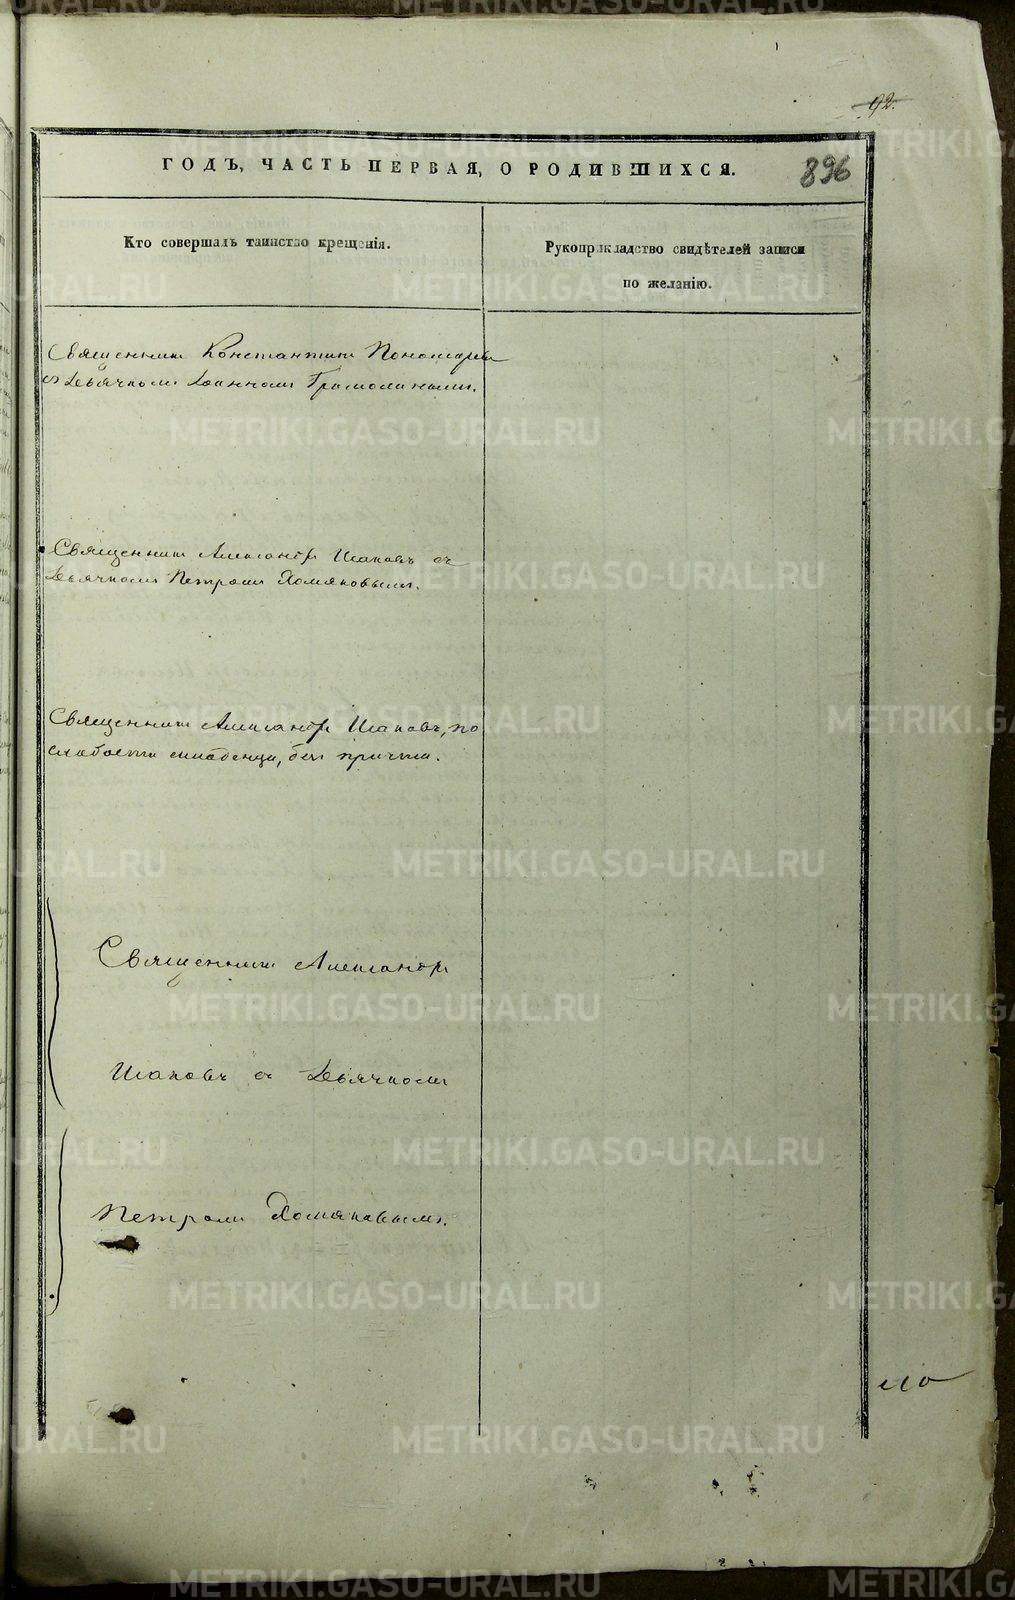 92.
ГОДЪ, ЧАСТЬ ПЕРВАЯ, О РОДИВШИХСЯ.
896
Кто совершалъ таинство крещенія.
Рукоприкладство свидѣтелей записи
по желанію.
Священникъ Константинъ Пономаревъ
съ Дьячкомъ Іоанномъ
Священникъ Александръ Исаковъ съ
Дьячкомъ Петромъ Хомяковымъ.
Священникъ Александръ Исаковъ, по
слабости младенца, безъ причта.
Священникъ Александръ
Исаковъ съ Дьячкомъ
Петромъ Хомяковымъ.
METRIKI.GASO-URAL.RU